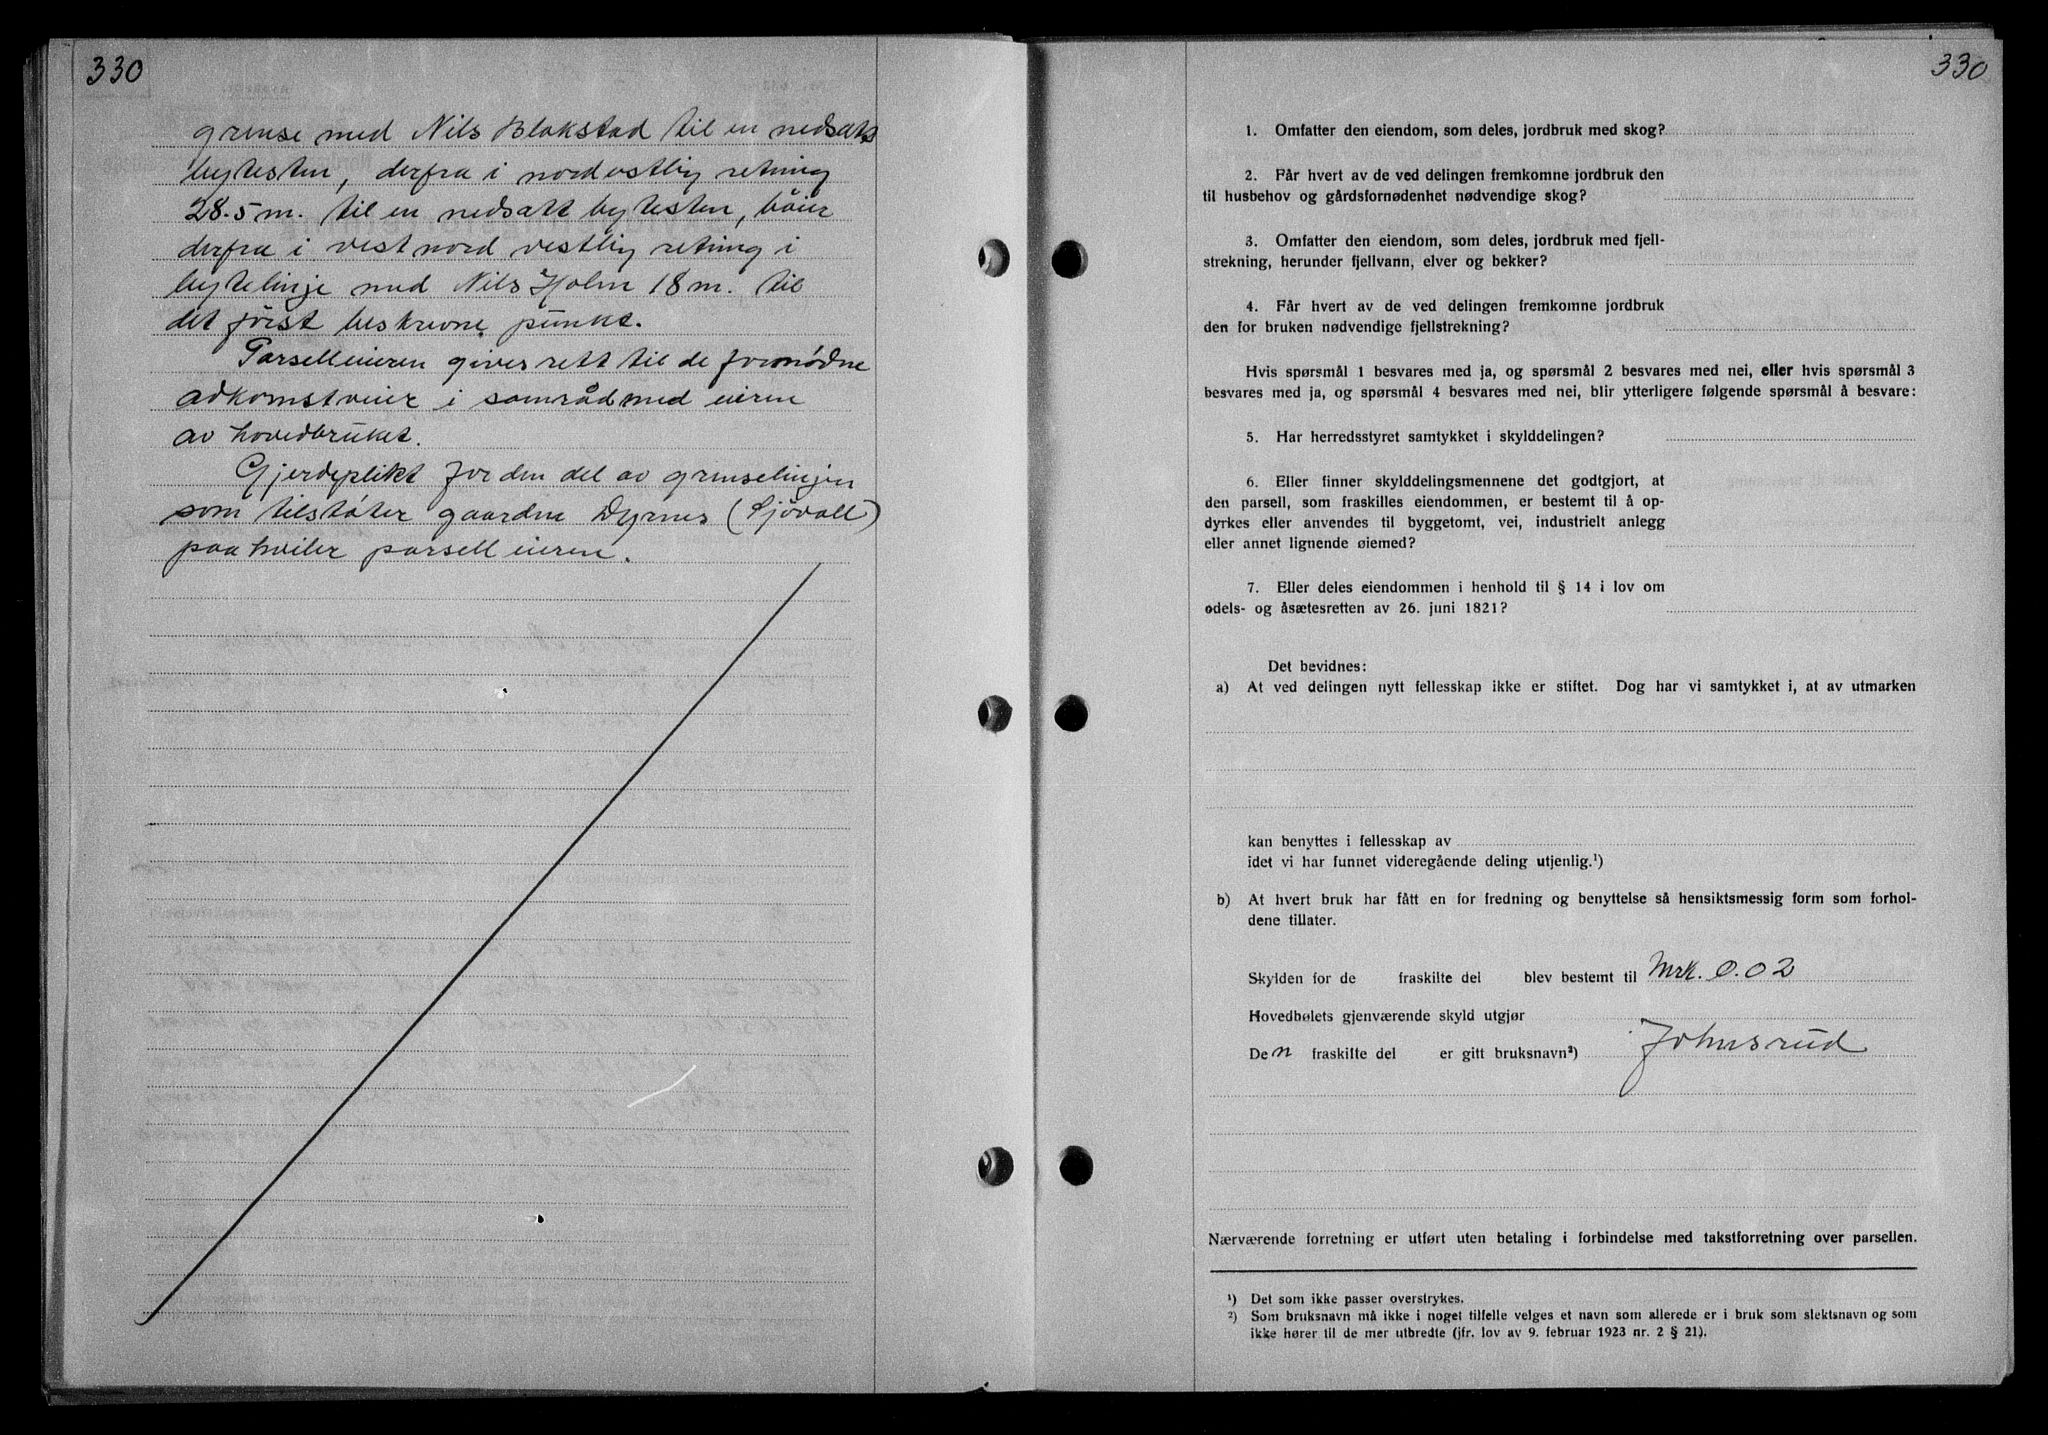 330
grense med Nils Blakstad til en nedsatt
bytesten, derfra i nordostlig retning
28.5 m. til en nedsatt bytesten, böier
derfra i vestnordvestlig retning i
bytelinje med Nils Holm 18 m. til
det först beskrevne punkt.
Parselleieren gives rett til de fornødne
adkomstveier i samråd med eieren
av hovedbruket.
Gjerdeplikt for den del av grenselinjen
som tilstøter gaardne Dyrnes (Sjövoll)
paahviler parselleieren.
330
1. Omfatter den eiendom, som deles, jordbruk med skog?
2. Får hvert av de ved delingen fremkomne jordbruk den
til husbehov og gårdsfornødenhet nødvendige skog?
3. Omfatter den eiendom, som deles, jordbruk med fjell-
strekning, herunder fjellvann, elver og bekker?
4. Får hvert av de ved delingen fremkomne jordbruk
den for bruken nødvendige fjellstrekning?
Hvis spørsmål 1 besvares med ja, og spørsmål 2 besvares med nei, eller hvis spørsmål 3
besvares med ja, og spørsmål 4 besvares med nei, blir ytterligere følgende spørsmål å besvare:
5. Har herredsstyret samtykket i skylddelingen?
6. Eller finner skylddelingsmennene det godtgjort, at
den parsell, som fraskilles eiendommen, er bestemt til å op-
dyrkes eller anvendes til byggetomt, vei, industrielt anlegg
eller annet lignende øiemed?
7. Eller deles eiendommen i henhold til § 14 i lov om
odels- og åsætesretten av 26. juni 1821?
Det bevidnes:
a) At ved delingen nytt fellesskap ikke er stiftet. Dog har vi samtykket i, at av utmarken
kan benyttes i fellesskap av
idet vi har funnet videregående deling utjenlig.¹)
b) At hvert bruk har fått en for fredning og benyttelse så hensiktsmessig form som forhol-
dene tillater.
Skylden for de fraskilte del blev bestemt til Mrk. 0.02
Hovedbølets gjenværende skyld utgjør
Den fraskilte del er gitt bruksnavn²) Johnsrud
Nærværende forretning er utført uten betaling i forbindelse med takstforretning over parsellen.
¹) Det som ikke passer overstrykes.
²) Som bruksnavn må ikke i noget tilfelle velges et navn som allerede er i bruk som slektsnavn og som
ikke hører til de mer utbredte (jfr. lov av 9. februar 1923 nr. 2 § 21).